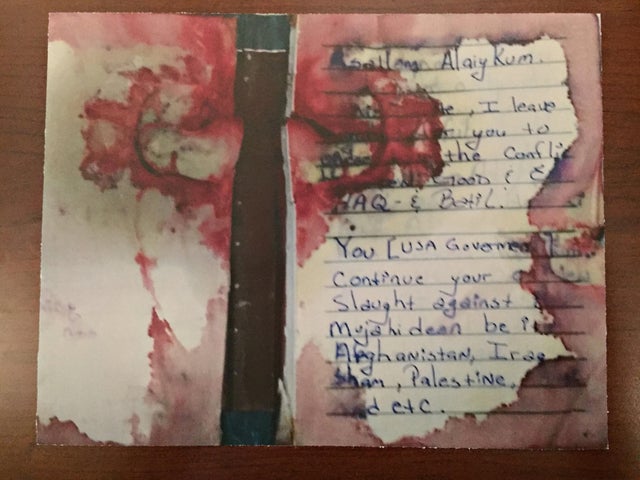 Alaiykum.
, I leave
you to
the Conflic
Good & E
HAQ - & Batil.
You [USA Governmen
Continue your
Slaught against
Mujahidean be it
Afghanistan, Iraq
Sham, Palestine,
d etc.